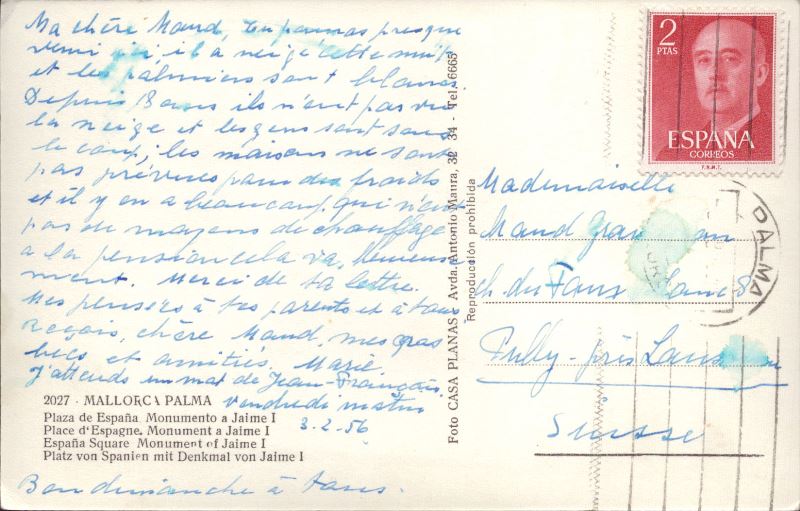 Ma chère Maud, tu pourras presque
venir ici il a neigé cette nuit
et les palmiers sont blancs.
Depuis ils n'ont pas vu
la neige et les gens sont sous
le coup; les maisons ne sont
pas prévues pour des froids
et il y en a beaucoup qui n'ont
pas de moyens de chauffage
a la pension cela va, heureuse
ment. Merci de ta lettre.
Mes pensées à tes parents et à tous
Reçois, chère Maud, mes gros
becs et amitiés. Marie.
J'attends un mot de Jean-François.
vendredi matin
3-2-56
2027 - MALLORCA PALMA
Plaza de España Monumento a Jaime I
Place d'Espagne. Monument a Jaime I
España Square Monument of Jaime I
Platz von Spanien mit Denkmal von Jaime I
Bon dimanche à tous.
Foto CASA PLANAS - Avda. Antonio Maura, 32 34 - Tel. 6665
Reproducción prohibida
2
PTAS
ESPAÑA
CORREOS
F.N.M.T.
PALMA
Mademoiselle
Maud
ch. du Faux
Pully-près Laus
Suisse